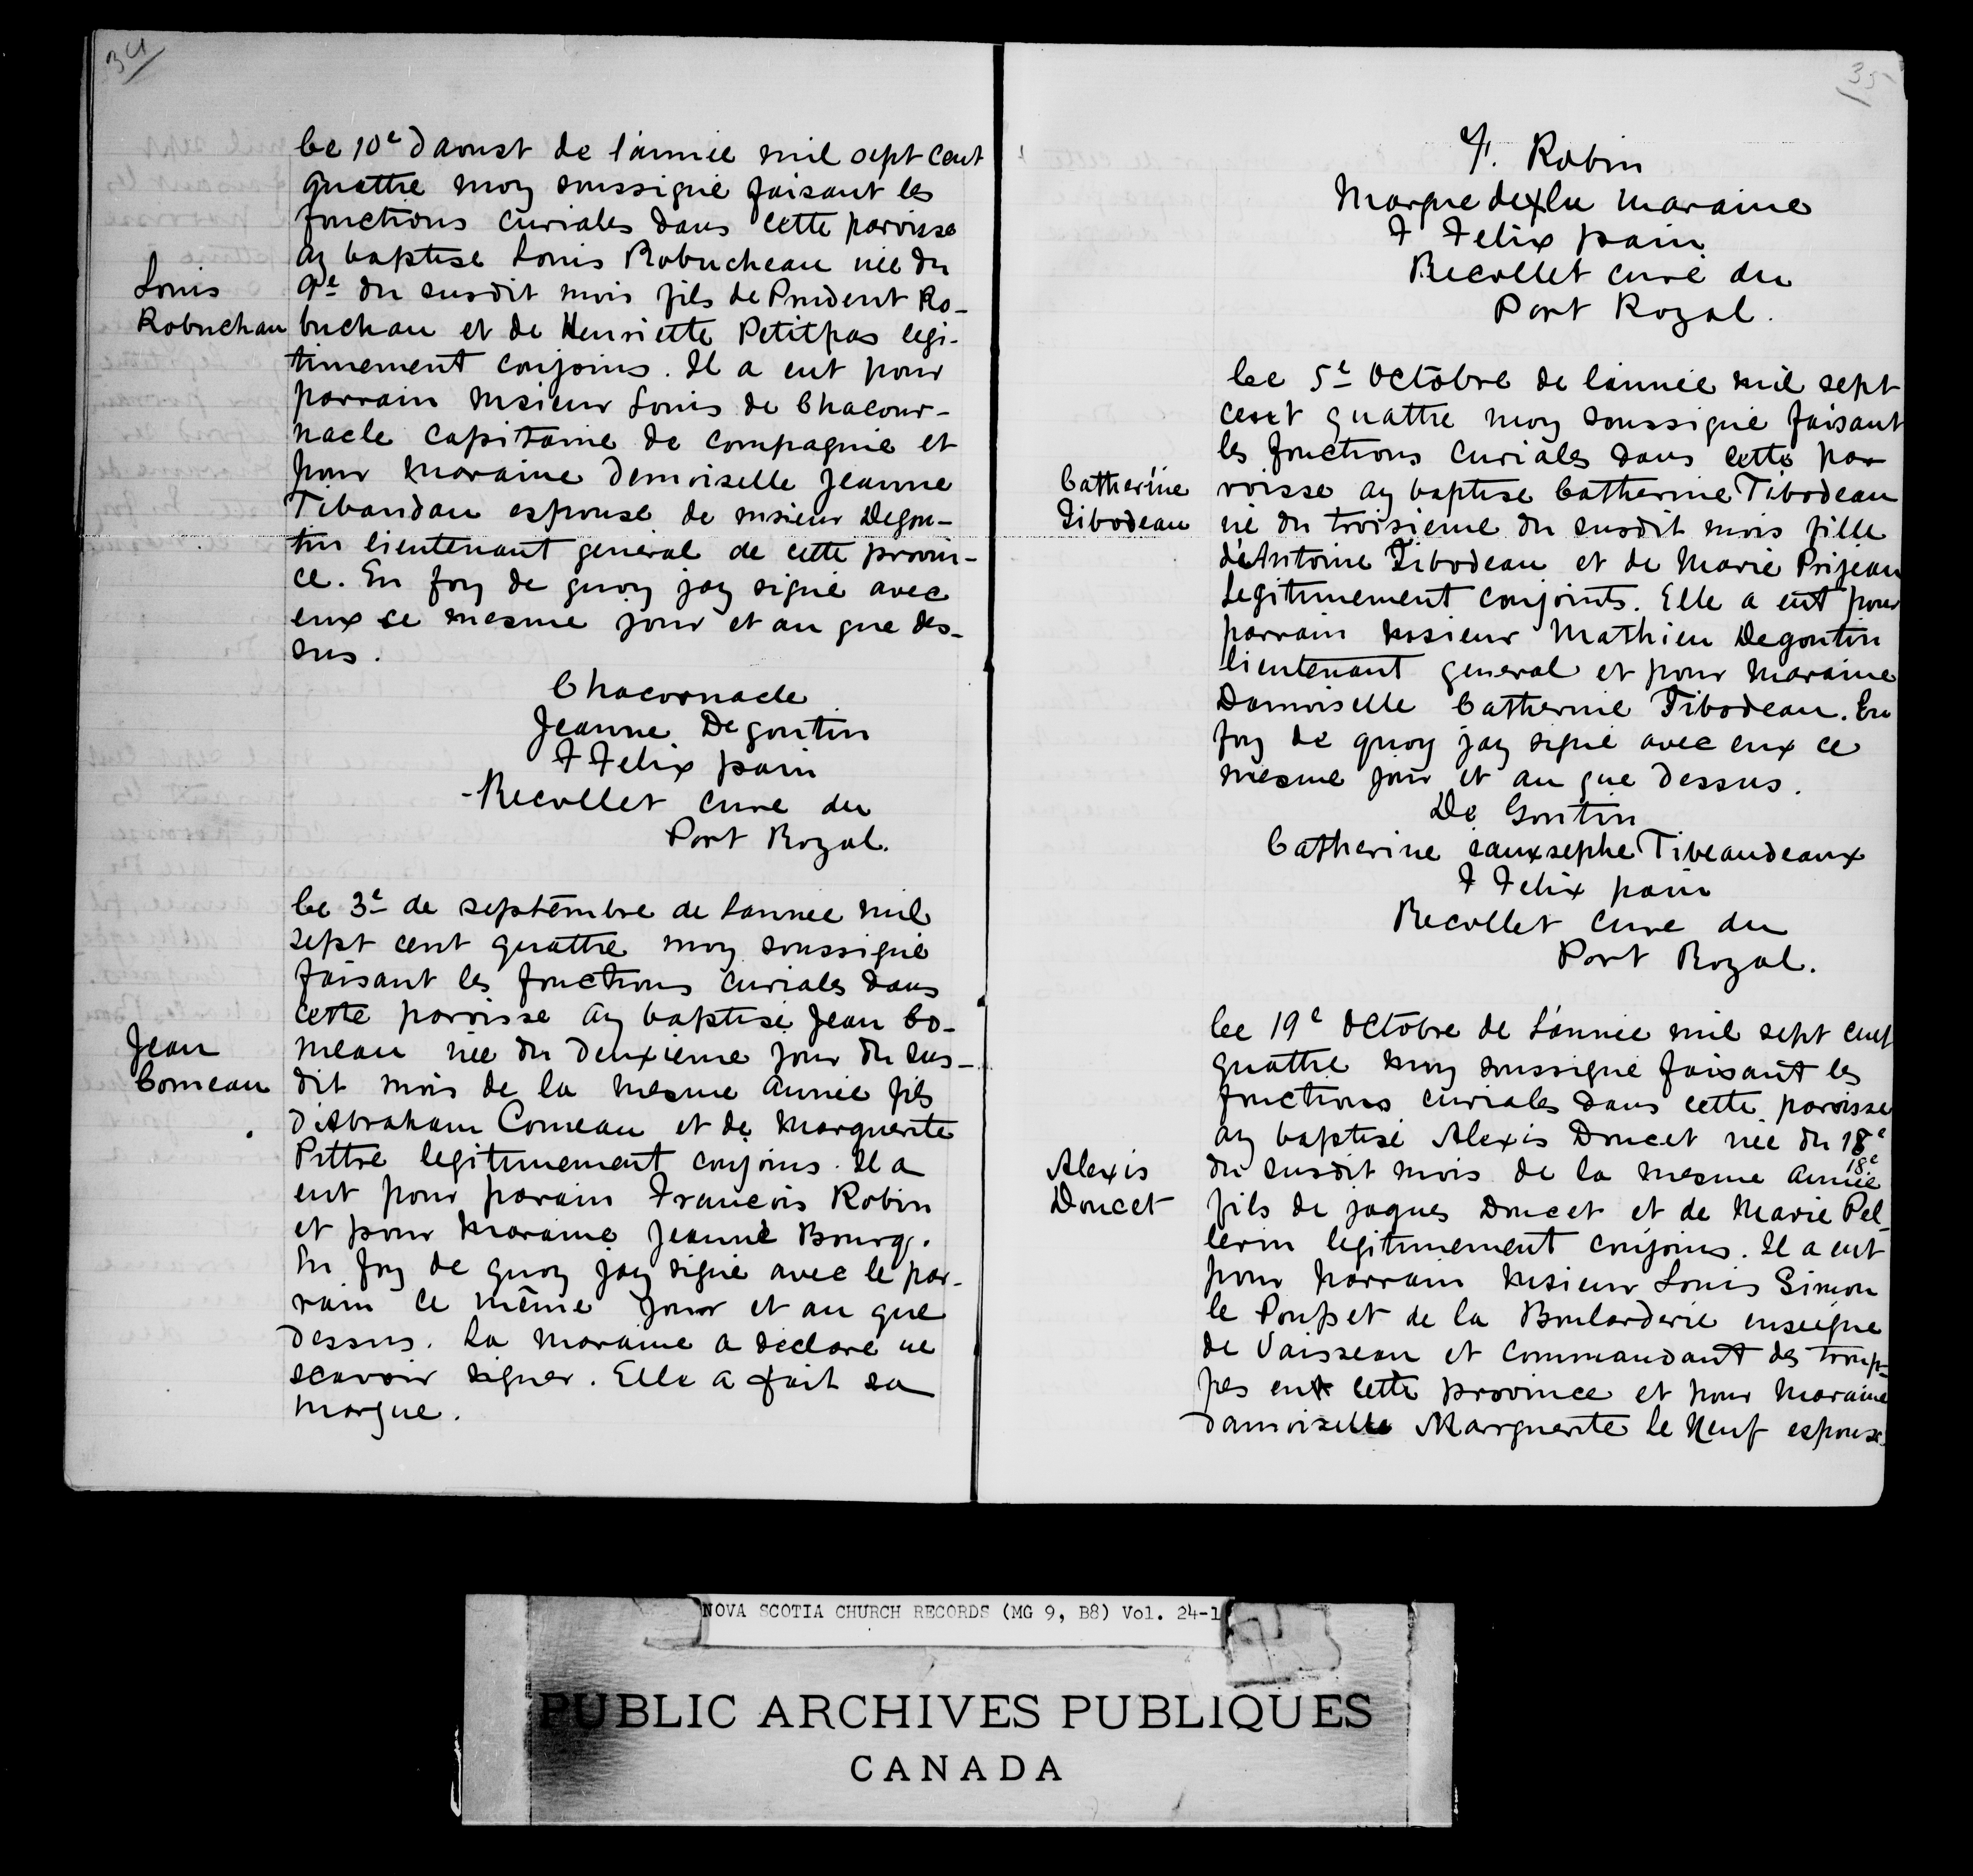 34
Le 10e Daoust de l'année mil sept cent
quattre moy soussigné faisant les
fonctions curiales dans cette paroisse
ay baptisé Louis Robucheau née du
9e du susdit mois fils de Prudent Ro-
buchau et de Henriette Petitpas legi-
timement conjoins. Il a eut pour
parrain Msieur Louis de Chacour-
nacle capitaine de compagnie et
pour maraine Demoiselle Jeanne
Tibaudau espouse de msieur Degou-
tin lieutenant general de cette provin-
ce. En foy de quoy jay signé avec
eux ce mesme jour et an que des-
sus.
Louis
Robuchau
Chacornacle
Jeanne Degoutin
F Felix pain
-Recollet cure du
Port Royal.
Le 3e de septembre de Lannee mil
sept cent quattre moy soussigné
faisant les fonctions curiales dans
cette paroisse ay baptisé Jean Co-
meau née du deuxieme jour du sus-
dit mois de la mesme année fils
D'Abraham Comeau et de Marguerite
Pittre legitimement conjoins. Il a
eut pour parain Francois Robin
et pour Maraine Jeanne Bourg.
En foy de quoy jay signé avec le par-
rain ce même jour et an que
dessus. La Maraine a declaré ne
scavoir signer. Elle a fait sa
marque.
Jean
Comeau
35
F. Robin
Marque de x la Maraine
F Felix pain
Recollet curé du
Port Royal.
Le 5e Octobre de l'année mil sept
cent quattre moy soussigné faisant
les fonctions curiales dans cette pa-
roisse ay baptisé Catherine Tibodeau
né du troisieme du susdit mois fille
d'Antoine Tibodeau et de Marie Prijean
Legitimement conjoints. Elle a eut pour
parrain Msieur Mathieu Degoutin
lieutenant general et pour Maraine
Damoiselle Catherine Tibodeau. En
foy de quoy jay signé avec eux ce
mesme jour et an que dessus.
Catherine
Tibodeau
De Goutin
Catherine sauxsephe Tibeaudeaux
F Felix pain
Recollet cure du
Port Royal.
Le 19e Octobre de L'année mil sept cent
quattre moy soussigné faisant les
fonctions curiales dans cette paroisse
ay baptisé Alexis Doucet née du 18e
18e
du susdit mois de la mesme année
fils de jaques Doucet et de Marie Pel-
lerin legitimement conjoins. Il a eut
pour parrain Msieur Louis Simon
le Poupet de la Boularderie enseigne
de Vaisseau et commandant des troup-
pes en cette province et pour Maraine
damoiselle Marguerite Le Neuf espouse
Alexis
Doucet
NOVA SCOTIA CHURCH RECORDS (MG 9, B8) Vol. 24-1
PUBLIC ARCHIVES PUBLIQUES
CANADA